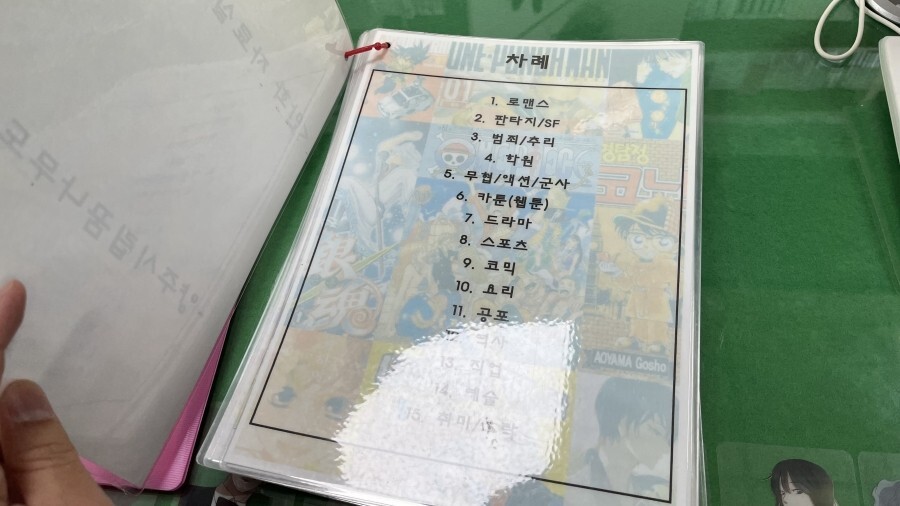 ONE-PUNCH MAN
01
차례
1. 로맨스
2. 판타지/SF
3. 범죄/추리
4. 학원
5. 무협/액션/군사
6. 카툰(웹툰)
7. 드라마
8. 스포츠
9. 코믹
10. 요리
11. 공포
12. 역사
13. 직업
14. 예술
15. 취미/오락
명탐정
코난
銀魂
AOYAMA Gosho
양주시립꿈나무도